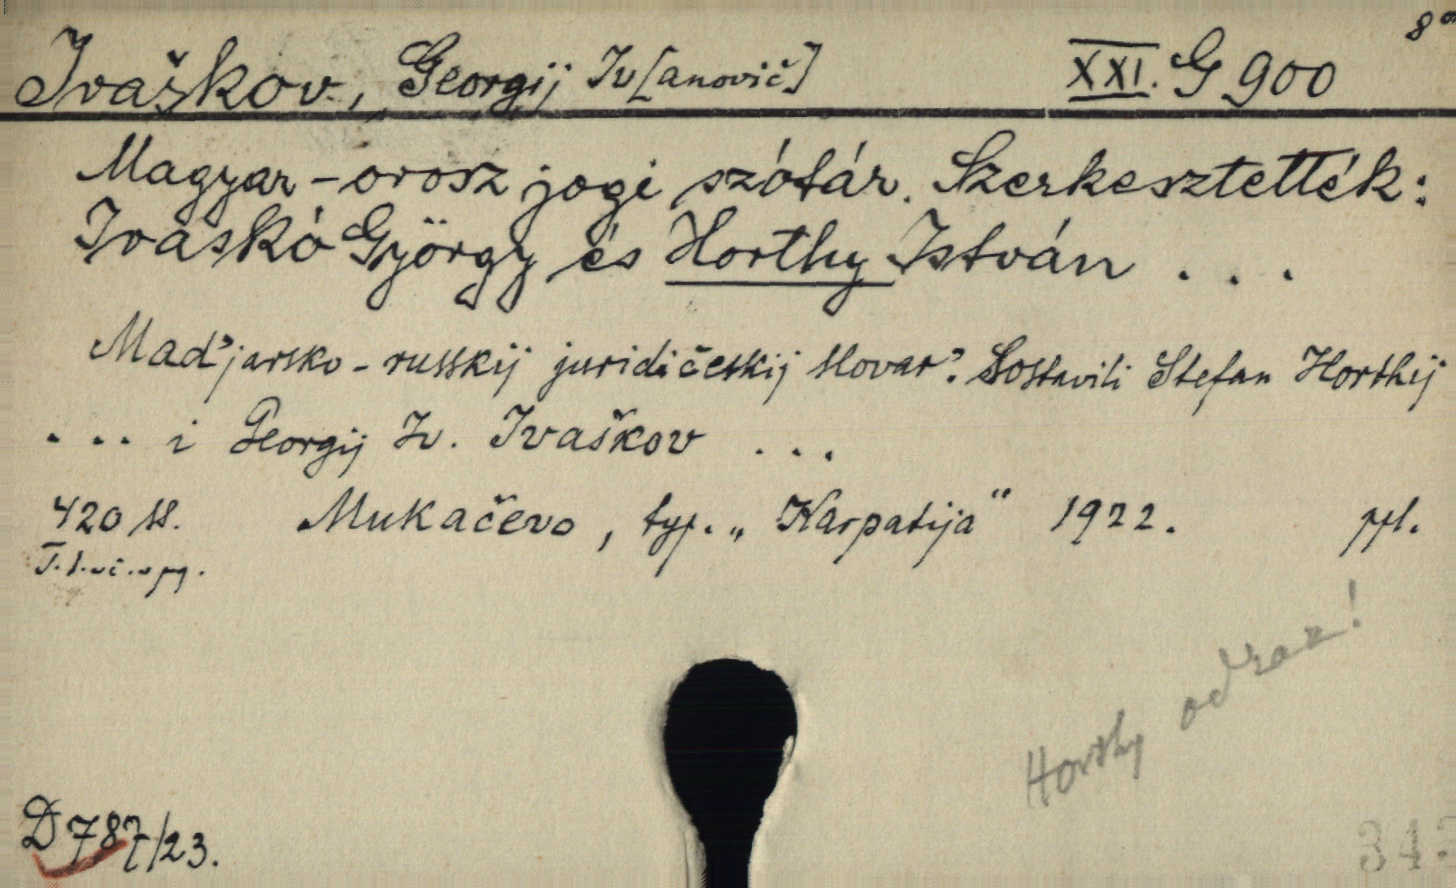 8°
Ivaškov, Georgij Iv[anovič] XXI. G 900
Magyar-orosz jogi szótár. Szerkesztették:
Ivaskó György és Horthy István . . .
Mad'jarsko-russkij juridičeskij slovar'. Sostavili Stefan Horthij
. . . i Georgij Iv. Ivaškov . . .
420 ss. Mukačevo, typ. „Karpatija" 1922. ppl.
Horthy odkaz!
D 787/23.
34